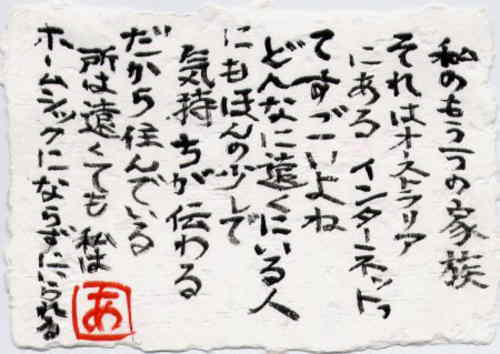 私のもう一つの家族
それはオーストラリア
にある インターネットっ
てすごいよね
どんなに遠くにいる人
にもほんの少しで
気持ちが伝わる
だから住んでいる
所は遠くても 私は
ホームシックにならずにいられる
あ